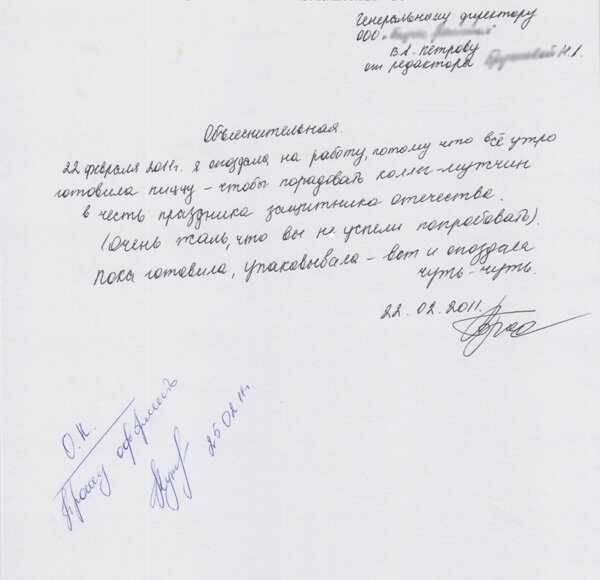 Генеральному директору
ООО "
В.А. Петрову
от редактора
Объяснительная.
22 февраля 2011г. я опоздала на работу, потому что всё утро
готовила пиццу - чтобы порадовать коллег-мужчин
в честь праздника защитника отечества.
(Очень жаль, что вы не успели попробовать).
Пока готовила, упаковывала - вот и опоздала
чуть-чуть.
22.02.2011.
О.К.
Прошу оформить
25.02.11г.